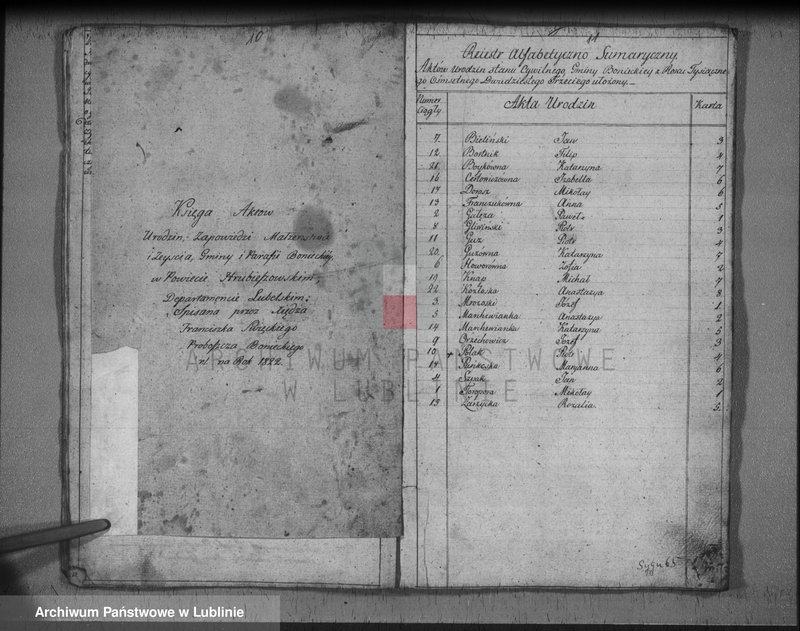 10
Księga Aktow
Urodzin, Zapowiedzi Małżenstwa
i Zeyscia, Gminy i Parafii Bonieckiey,
w Powiecie Hrubieszowskim,
Departamencie Lubelskim;
Spisana przez Xiędza
Franciszka Święckiego
Proboszcza Bonieckiego
na Rok 1822.
11
Reiestr Alfabetyczno Sumaryczny
Aktów Urodzin stanu Cywilnego Gminy Bonieckiey z Roku Tysiączne-
go Ośmsetnego Dwudziestego Trzeciego ułożony.
Numer ciągły Akta Urodzin Karta
7. Bieliński Jan 3
12. Bortnik Filip 4
21. Boykówna Katarzyna 7
16 Izabella 6
17 Dorosz Mikołay 6
13 Franczukówna Anna 5
2 Gałęza Paweł 1
8 Gliwiński Piotr 3
11 Guz Piotr 4
20. Guzówna Katarzyna 7
6 Zofia 2
19 Knap Michał 7
22 Kozłoska Anastazya 8
3. Mrozoski Józef 1
5 Manhewianka Anastazya 2
14 Manhewianka Katarzyna 5
9 Orzechowicz Józef 3
10 Polak Piotr 4
Maryanna 6
4 Jan 2
1 Mikołay 1
15 Zarzycka Rozalia. 5.
ARCHIWUM PAŃSTWOWE
W LUBLINIE
Sygn 65
Archiwum Państwowe w Lublinie